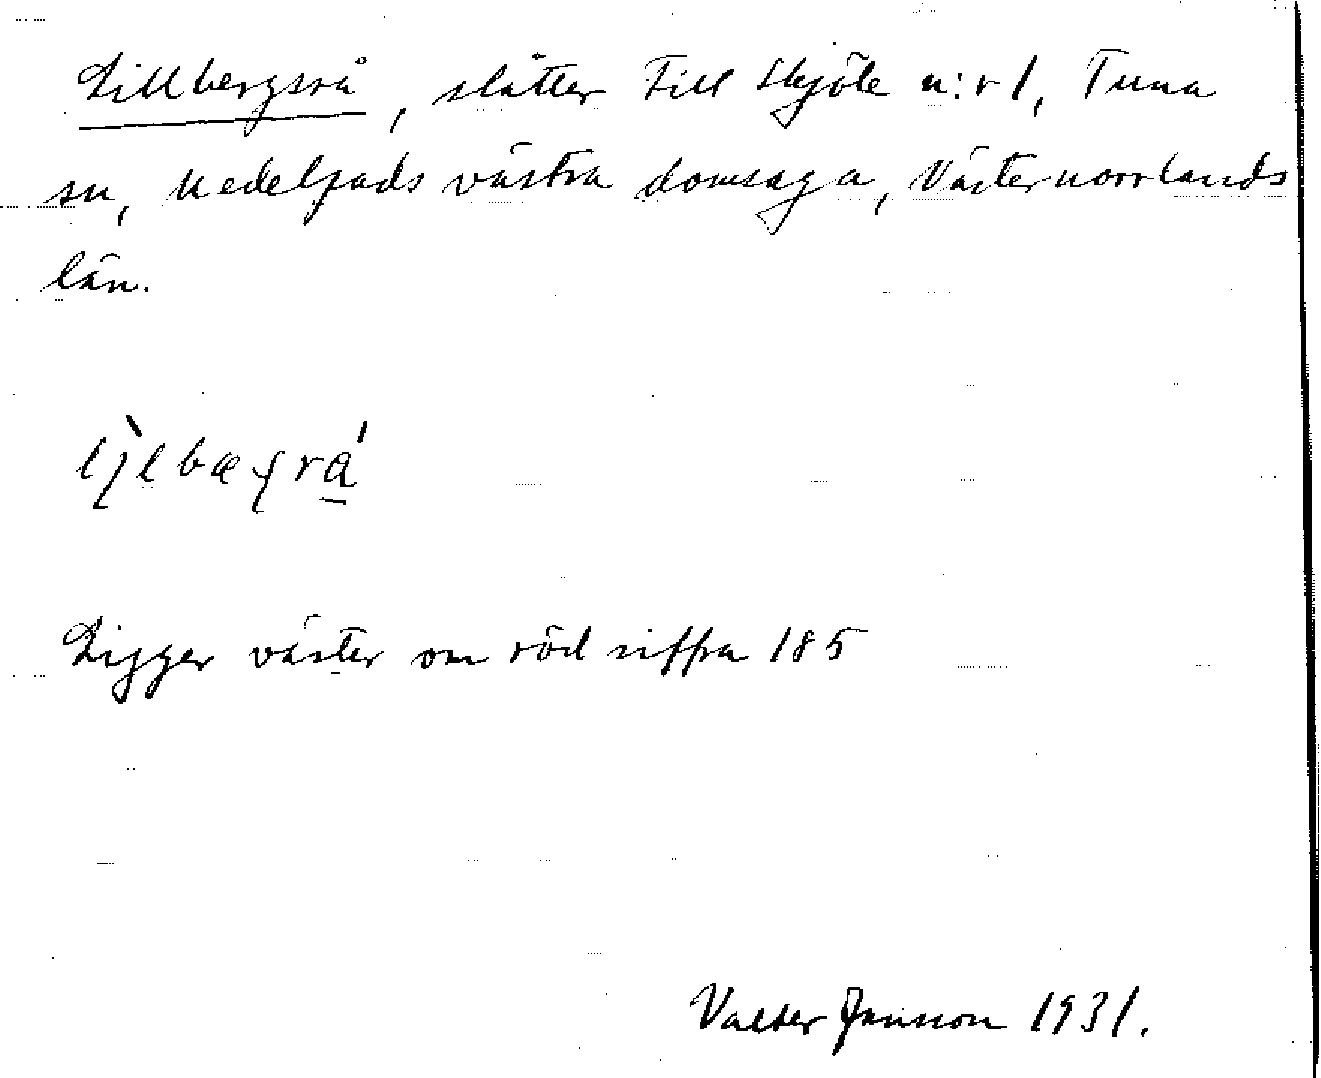 Lillbergsrå, slåtter till Skjöle n:r 1, Tuna
sn, Medelpads västra domsaga, Västernorrlands
län.
Ligger väster om röd siffra 185
Valter Jansson 1931.